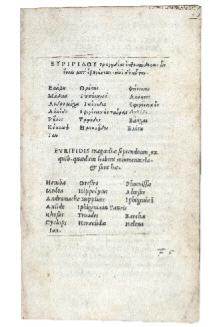 ΕΥΡΙΠΙΔΟΥ τραγῳδίαι ἑπτακαίδεκα, ὧν
ἔνιαι μετ' ἐξηγήσεων. εἰσὶ δὲ αὗται.
Ἑκάβη Ὀρέστης Φοίνισσαι
Μήδεια Ἱππόλυτος Ἄλκηστις
Ἀνδρομάχη Ἱκέτιδες Ἰφιγένεια ἐν
Αὐλίδι Ἰφιγένεια ἐν ταύροις
Ῥῆσος Τρῳάδες Βάκχαι
Κύκλωψ Ἡρακλεῖδαι Ἑλένη
Ἴων.
EVRIPIDIS tragœdiæ septendecim, ex
quib. quædam habent commentaria
& sunt hæ.
Hecuba Orestes Phœnissæ
Medea Hippolytus Alcestis
Andromache Supplices Iphigenia in
Aulide Iphigenia in Tauris
Rhesus Troades Bacchæ
Cyclops Heraclidæ Helena
Ion.